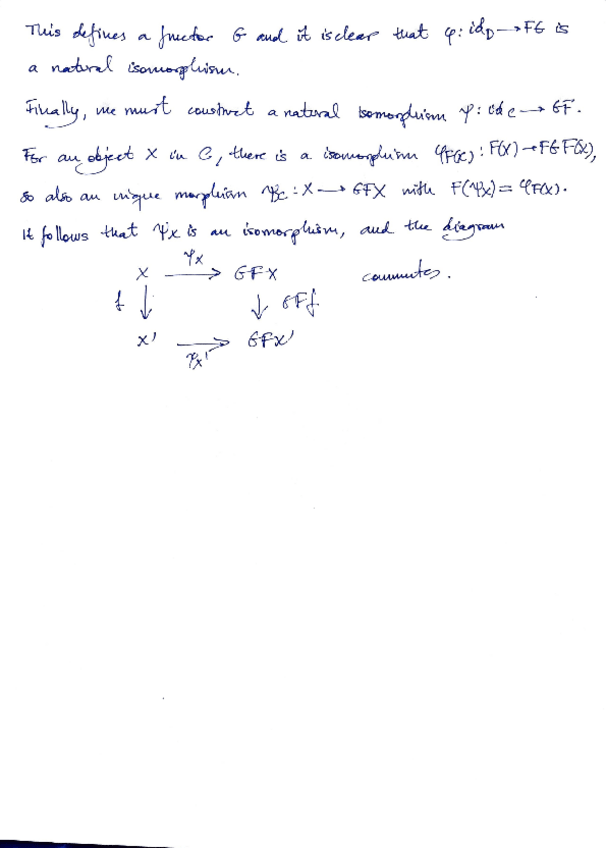 This defines a functor G and it is clear that φ: id_D → FG is
a natural isomorphism.
Finally, we must construct a natural isomorphism ψ: id_C → GF.
For an object X in C, there is a isomorphism φ_F(X): F(X) → FGF(X),
so also an unique morphism ψ_X: X → GFX with F(ψ_X) = φ_F(X).
It follows that ψ_X is an isomorphism, and the diagram
X ψ_X → GFX commutes.
f ↓ ↓ GFf
X' → ψ_X' GFX'